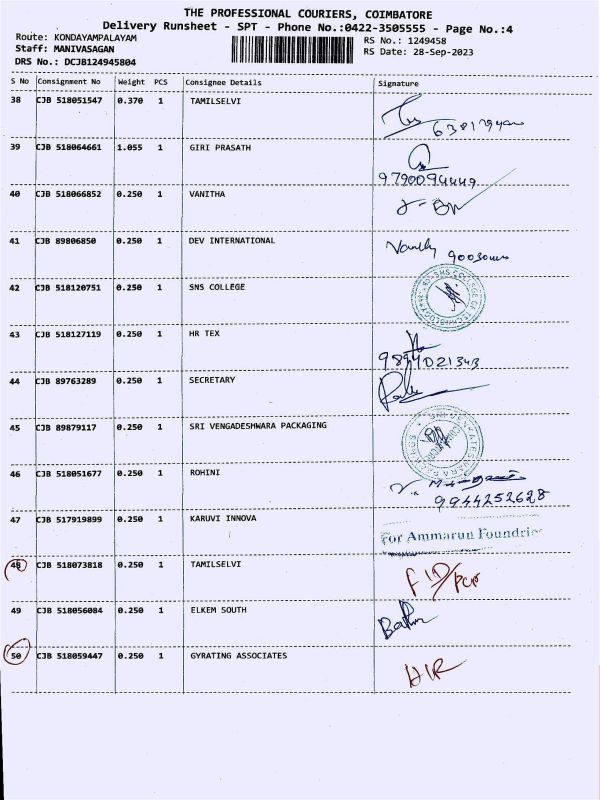 THE PROFESSIONAL COURIERS, COIMBATORE
Delivery Runsheet - SPT - Phone No.:0422-3505555 - Page No.:4
Route: KONDAYAMPALAYAM
Staff: MANIVASAGAN
DRS No.: DCJB124945804
RS No.: 1249458
RS Date: 28-Sep-2023
S No Consignment No Weight PCS Consignee Details Signature
38 CJB 518051547 0.370 1 TAMILSELVI
39 CJB 518064661 1.055 1 GIRI PRASATH
9790094449
40 CJB 518066852 0.250 1 VANITHA
41 CJB 89806850 0.250 1 DEV INTERNATIONAL
42 CJB 518120751 0.250 1 SNS COLLEGE
SNS COLLEGE
43 CJB 518127119 0.250 1 HR TEX
44 CJB 89763289 0.250 1 SECRETARY
45 CJB 89879117 0.250 1 SRI VENGADESHWARA PACKAGING
46 CJB 518051677 0.250 1 ROHINI
9944252628
47 CJB 517919899 0.250 1 KARUVI INNOVA
For Ammarun Foundries
48 CJB 518073818 0.250 1 TAMILSELVI
49 CJB 518056084 0.250 1 ELKEM SOUTH
50 CJB 518059447 0.250 1 GYRATING ASSOCIATES